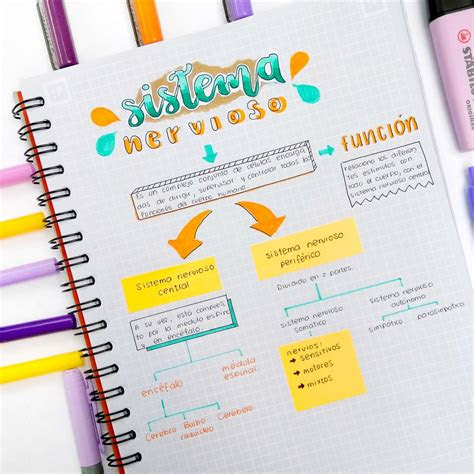 sistema
nervioso
Es un complejo conjunto de células encarga
das de dirigir, supervisar y controlar todas las
funciones del cuerpo humano.
función
relaciona los diferen
tes estímulos con
todo el cuerpo, con el
sistema nervioso central
sistema nervioso
central
sistema nervioso
periférico
A su vez, está compues
to por la médula espinal
en encéfalo.
encéfalo
médula
espinal
Cerebro
Bulbo
raquídeo
Cerebelo
Dividido en 2 partes.
sistema nervioso
somático
Sistema nervioso
autónomo
simpático
parasimpático
nervios:
→ sensitivos
→ motores
→ mixtos
STABILO
ORIGINAL